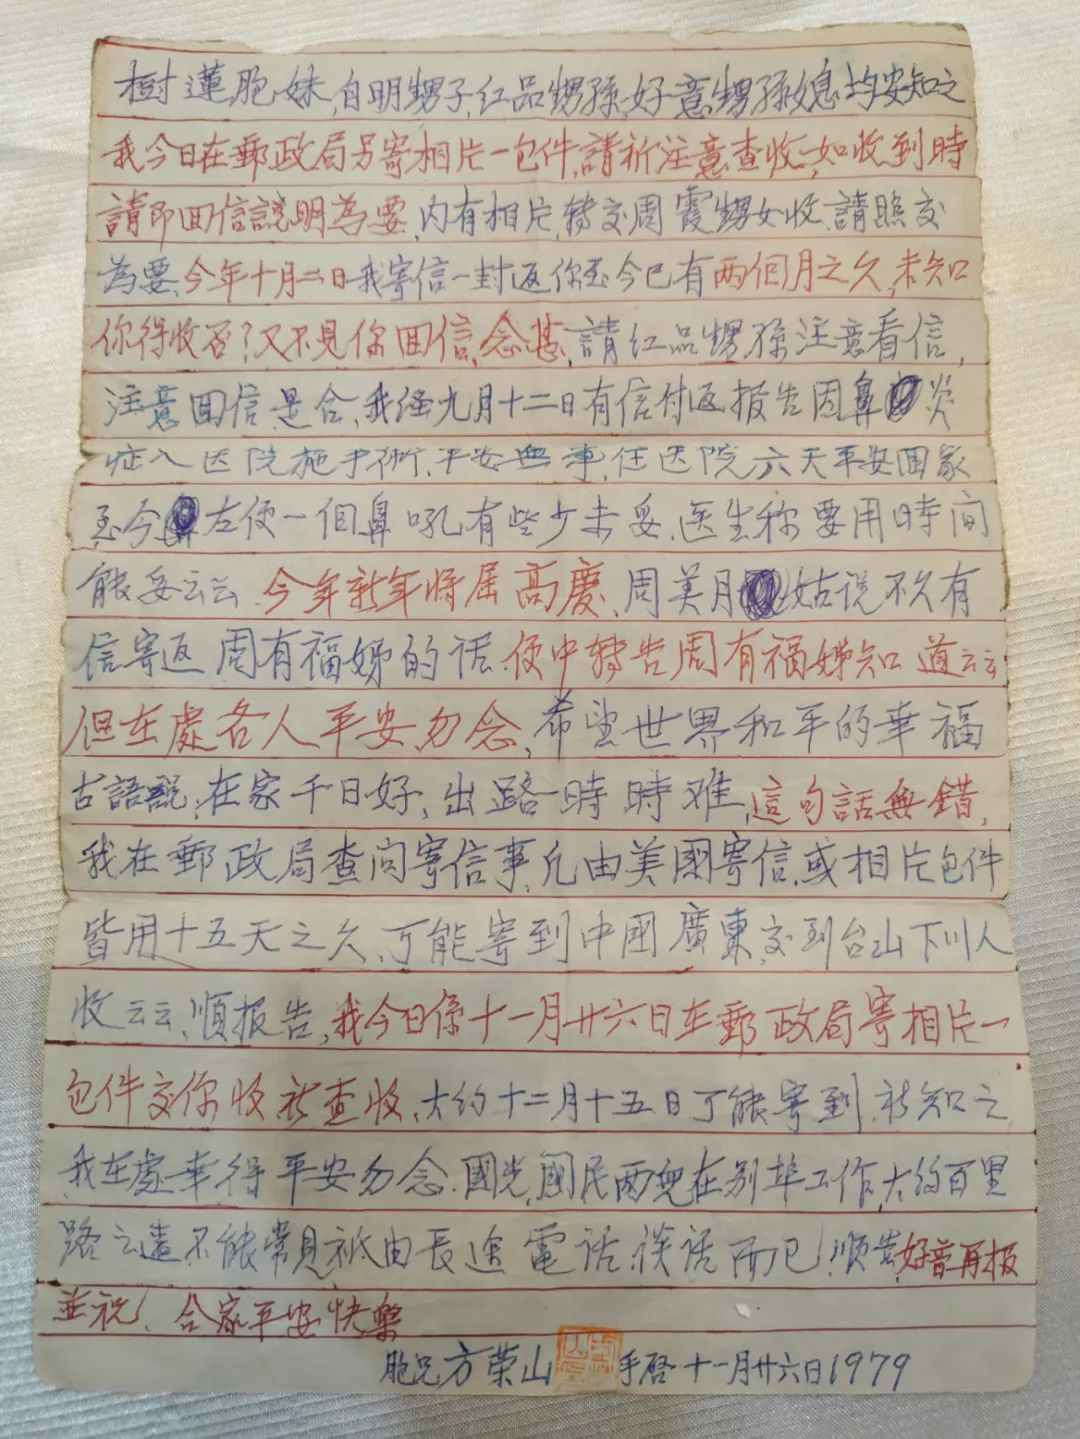 樹蓮胞妹,自明甥子,红品甥孫,好意甥孫媳均安知之
我今日在郵政局另寄相片一包件,請祈注意查收,如收到時
請即回信說明為要,内有相片,轉交周霞甥女收,請照交
為要,今年十月二日我寄信一封返你至今已有两個月之久,未知
你得收否?又不見你回信,念甚,請红品甥孫注意看信,
注意回信是合,我經九月十二日有信付返报告因鼻炎
症入医院施手術,平安無事,住医院六天平安回家
至今左便一個鼻吼有些少未妥,医生称要用時间
能妥云云.今年新年将届高慶,周美月姑说不久有
信寄返周有福娣的话便中轉告周有福娣知道云云
但在處各人平安勿念,希望世界和平的幸福
古語說,在家千日好,出路一時時难,這句話無錯,
我在郵政局查问寄信事,凡由美國寄信,或相片包件
皆用十五天之久,可能寄到中國廣東,交到台山下川人
收云云,順报告,我今日係十一月廿六日在郵政局寄相片一
包件交你收祈查收,大约十二月十五日可能寄到,祈知之
我在處幸得平安勿念.國光,國民两兒在别埠工作,大约百里
路之遠不能常見祇由長途電话谈话而已!順告,好音再报
並祝!合家平安快樂
胞兄方荣山 手啓十一月廿六日1979